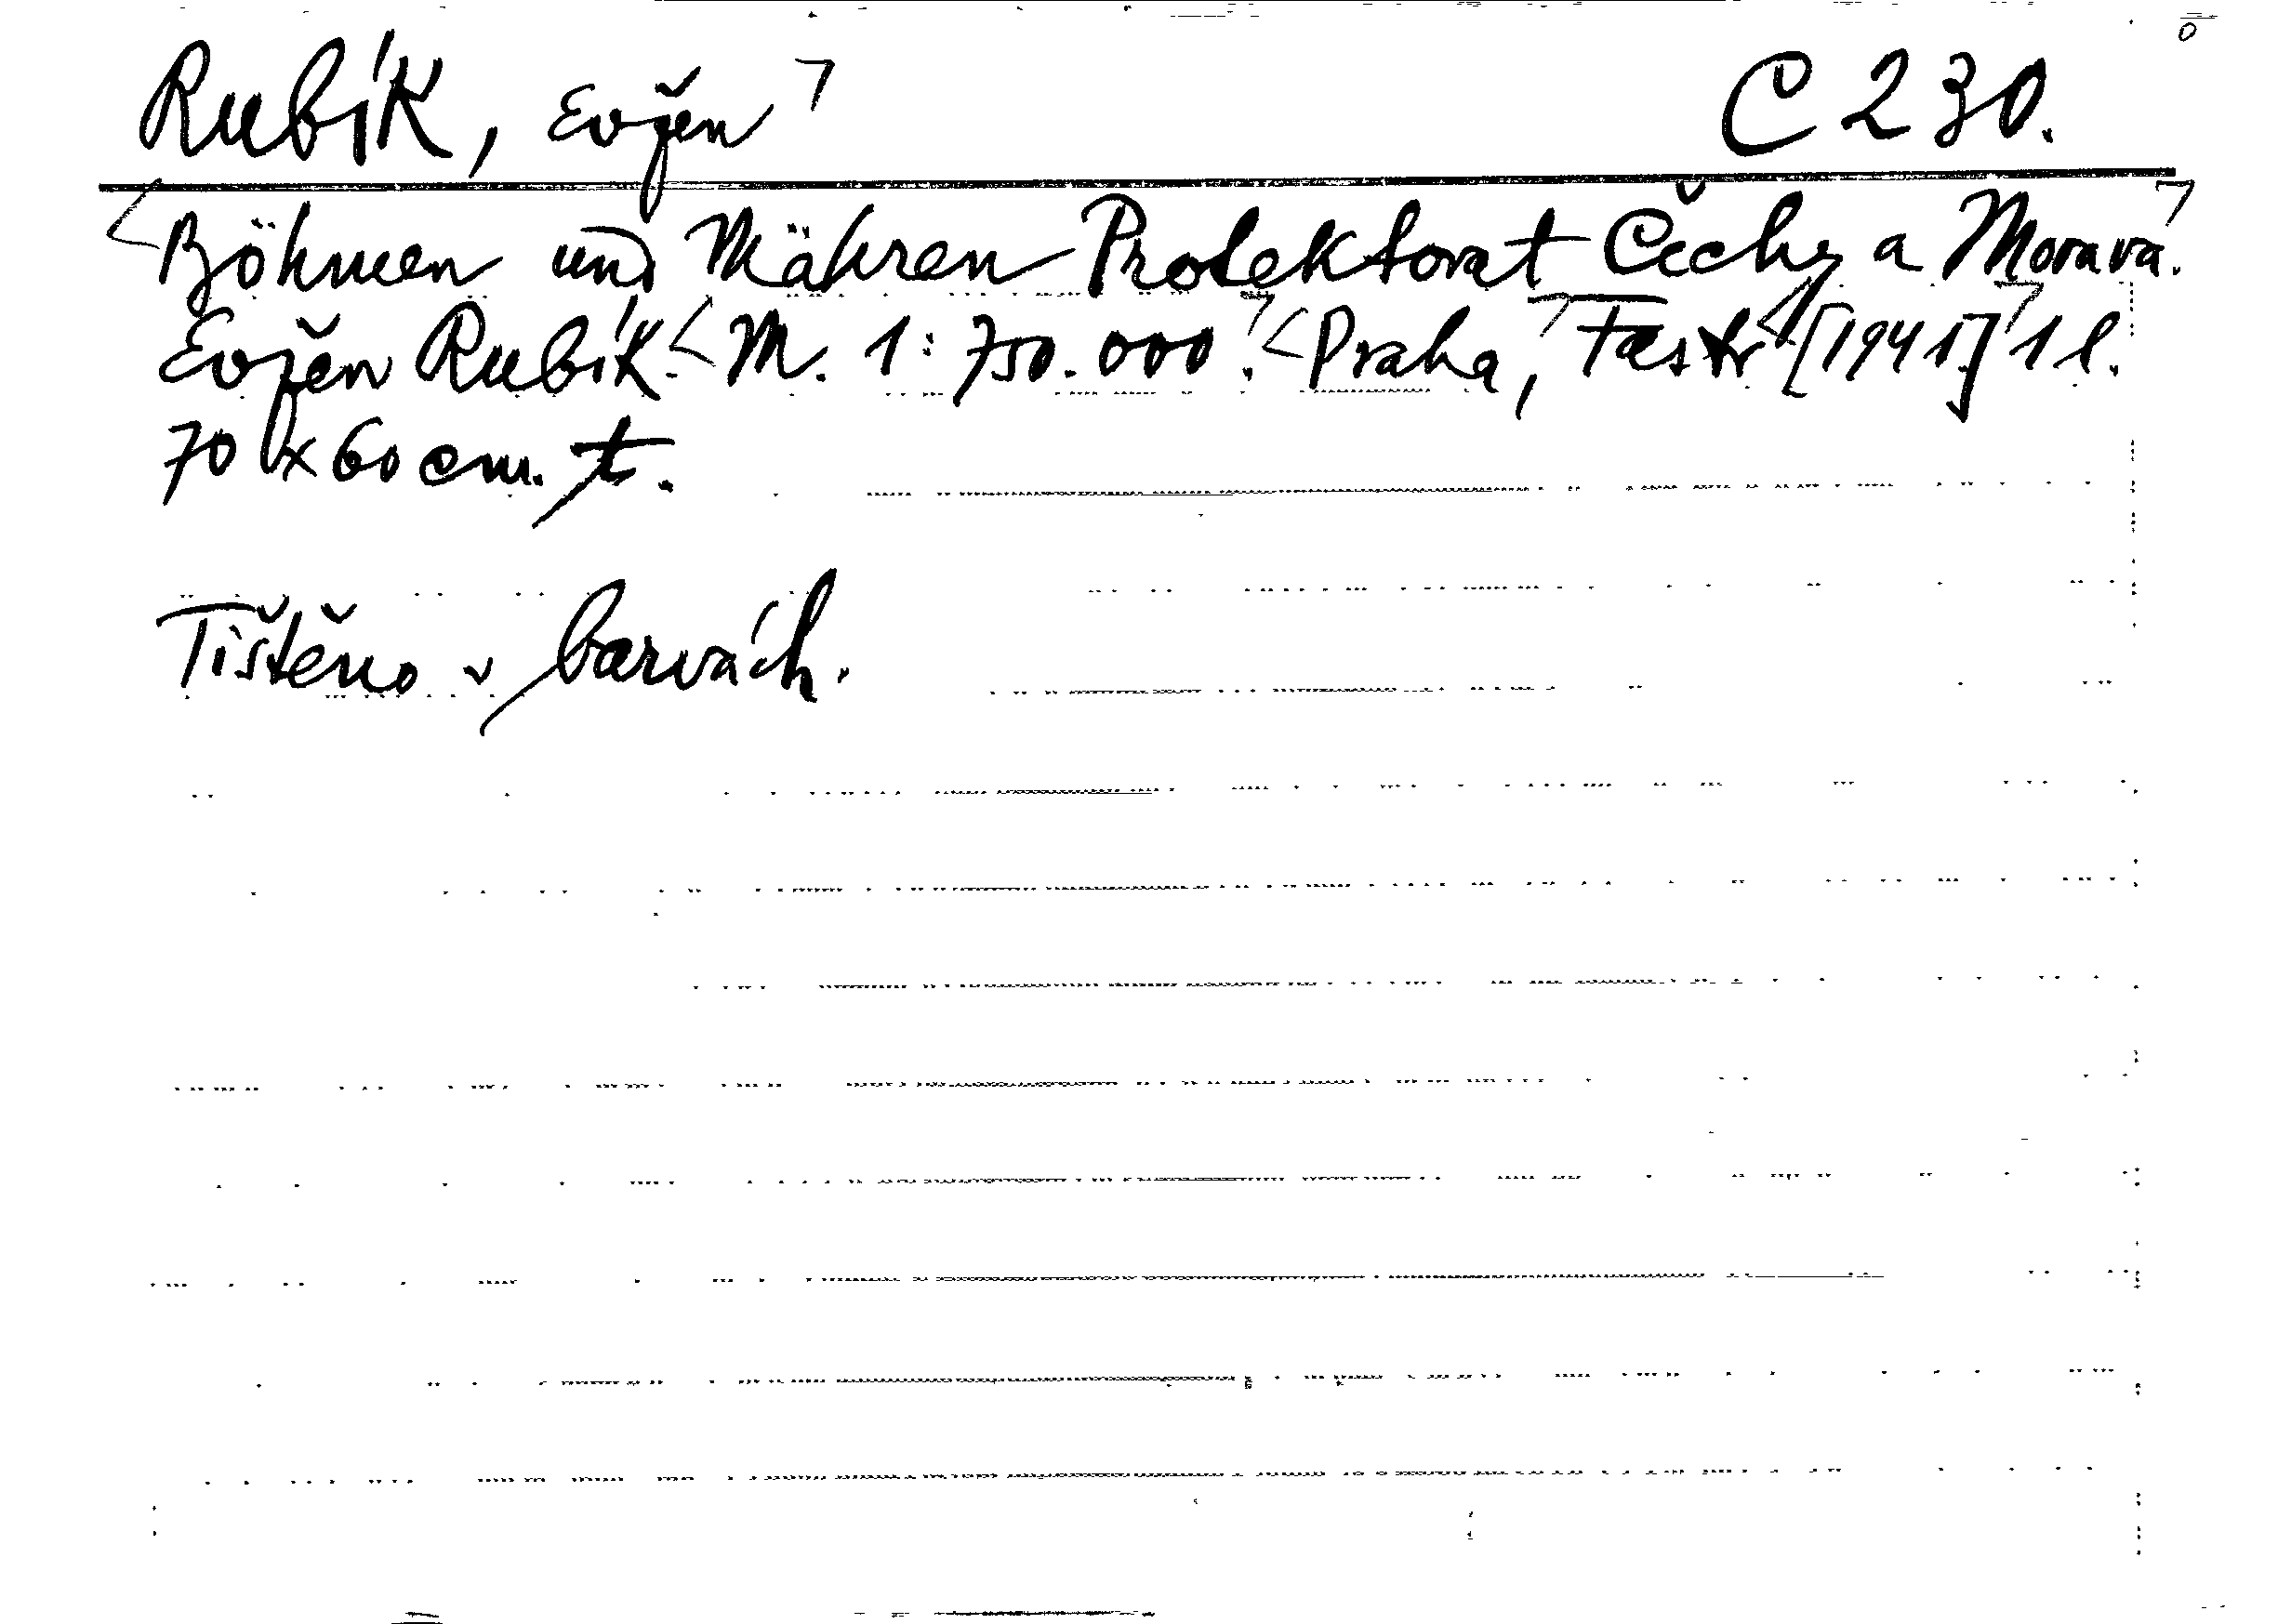 Rubík, Evžen⁊ C 230.
<Böhmen und Mähren Protektorat Čechy a Morava.⁊
Evžen Rubík.<M. 1:750.000.⁊ <Praha,⁊ Fastr<[1941.]⁊ 1 l.
70 x 60 cm. t.
Tištěno v barvách.